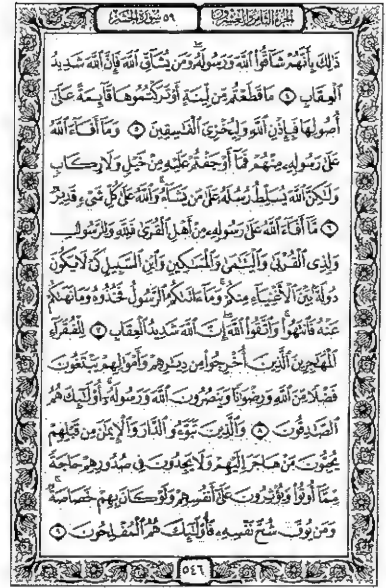 الجزء الثامن والعشرون ٥٩ سورة الحشر
ذَٰلِكَ بِأَنَّهُمْ شَآقُّوا۟ ٱللَّهَ وَرَسُولَهُۥ ۖ وَمَن يُشَآقِّ ٱللَّهَ فَإِنَّ ٱللَّهَ شَدِيدُ
ٱلْعِقَابِ ٤ مَا قَطَعْتُم مِّن لِّينَةٍ أَوْ تَرَكْتُمُوهَا قَآئِمَةً عَلَىٰٓ
أُصُولِهَا فَبِإِذْنِ ٱللَّهِ وَلِيُخْزِىَ ٱلْفَٰسِقِينَ ٥ وَمَآ أَفَآءَ ٱللَّهُ
عَلَىٰ رَسُولِهِۦ مِنْهُمْ فَمَآ أَوْجَفْتُمْ عَلَيْهِ مِنْ خَيْلٍ وَلَا رِكَابٍ
وَلَٰكِنَّ ٱللَّهَ يُسَلِّطُ رُسُلَهُۥ عَلَىٰ مَن يَشَآءُ ۚ وَٱللَّهُ عَلَىٰ كُلِّ شَىْءٍ قَدِيرٌ
٦ مَّآ أَفَآءَ ٱللَّهُ عَلَىٰ رَسُولِهِۦ مِنْ أَهْلِ ٱلْقُرَىٰ فَلِلَّهِ وَلِلرَّسُولِ
وَلِذِى ٱلْقُرْبَىٰ وَٱلْيَتَٰمَىٰ وَٱلْمَسَٰكِينِ وَٱبْنِ ٱلسَّبِيلِ كَىْ لَا يَكُونَ
دُولَةًۢ بَيْنَ ٱلْأَغْنِيَآءِ مِنكُمْ ۚ وَمَآ ءَاتَىٰكُمُ ٱلرَّسُولُ فَخُذُوهُ وَمَا نَهَىٰكُمْ
عَنْهُ فَٱنتَهُوا۟ ۚ وَٱتَّقُوا۟ ٱللَّهَ ۖ إِنَّ ٱللَّهَ شَدِيدُ ٱلْعِقَابِ ٧ لِلْفُقَرَآءِ
ٱلْمُهَٰجِرِينَ ٱلَّذِينَ أُخْرِجُوا۟ مِن دِيَٰرِهِمْ وَأَمْوَٰلِهِمْ يَبْتَغُونَ
فَضْلًا مِّنَ ٱللَّهِ وَرِضْوَٰنًا وَيَنصُرُونَ ٱللَّهَ وَرَسُولَهُۥٓ ۚ أُو۟لَٰٓئِكَ هُمُ
ٱلصَّٰدِقُونَ ٨ وَٱلَّذِينَ تَبَوَّءُو ٱلدَّارَ وَٱلْإِيمَٰنَ مِن قَبْلِهِمْ
يُحِبُّونَ مَنْ هَاجَرَ إِلَيْهِمْ وَلَا يَجِدُونَ فِى صُدُورِهِمْ حَاجَةً
مِّمَّآ أُوتُوا۟ وَيُؤْثِرُونَ عَلَىٰٓ أَنفُسِهِمْ وَلَوْ كَانَ بِهِمْ خَصَاصَةٌ ۚ
وَمَن يُوقَ شُحَّ نَفْسِهِۦ فَأُو۟لَٰٓئِكَ هُمُ ٱلْمُفْلِحُونَ ٩
٥٤٦